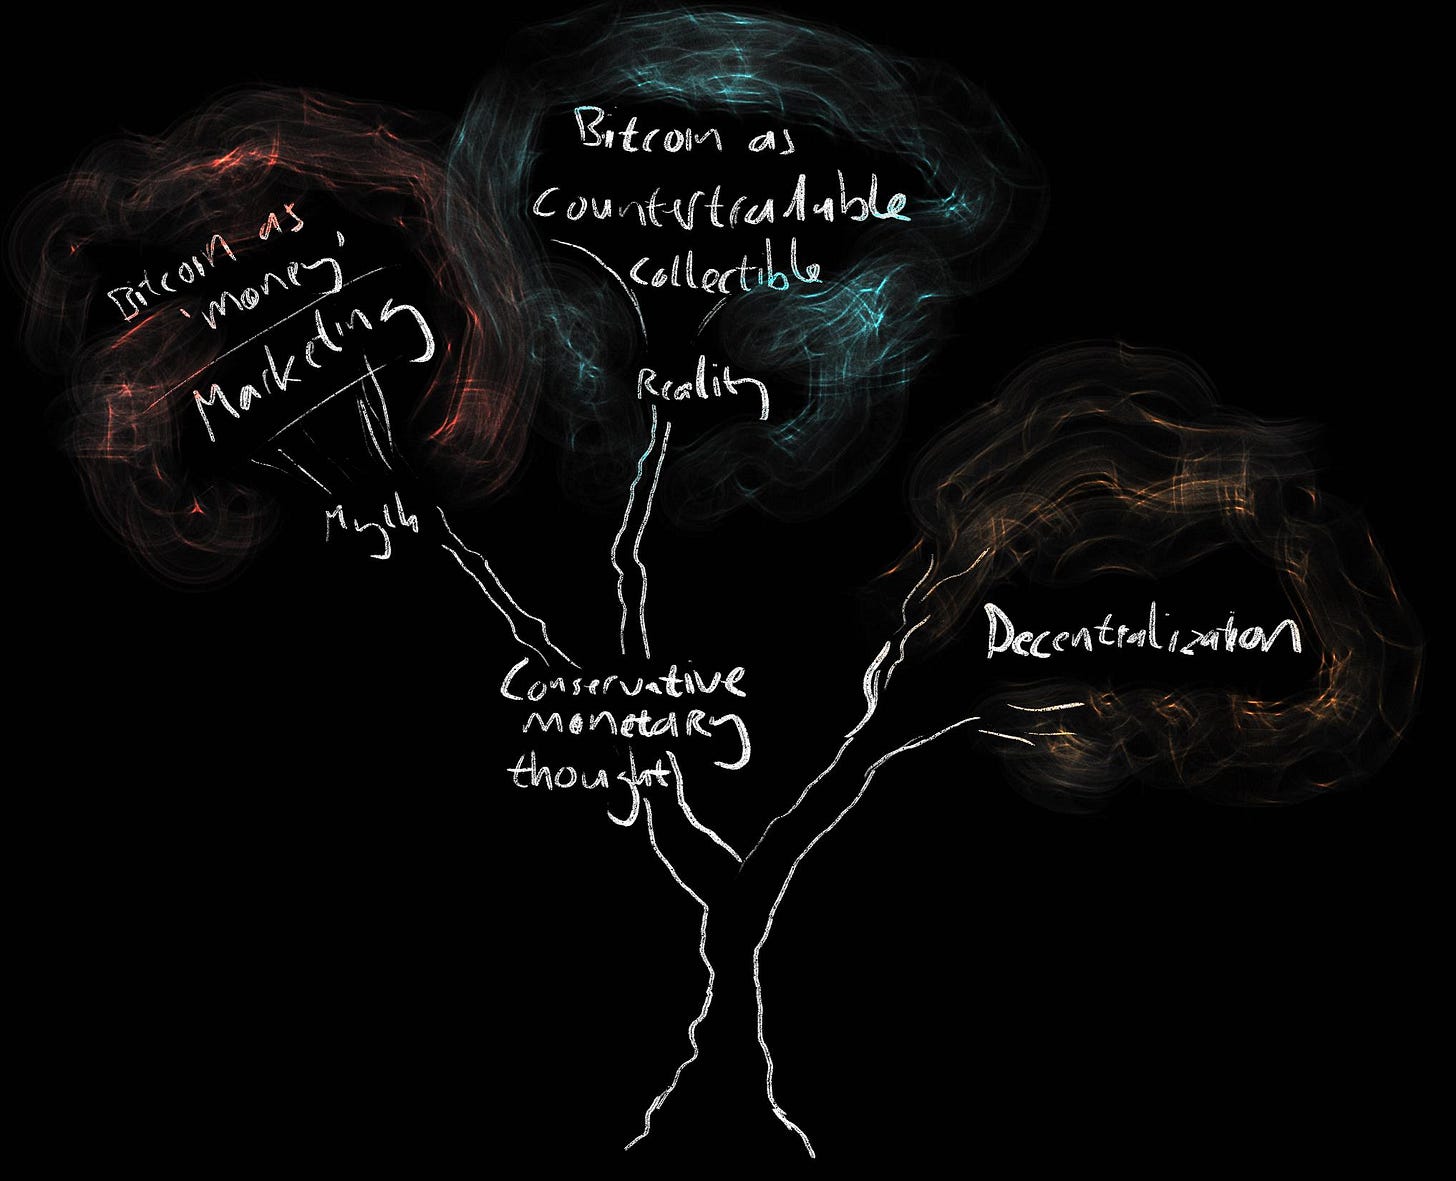 Bitcoin as
'money'
Marketing
Myth
Bitcoin as
Countertradable
Collectible
Reality
Decentralization
Conservative
monetary
thought